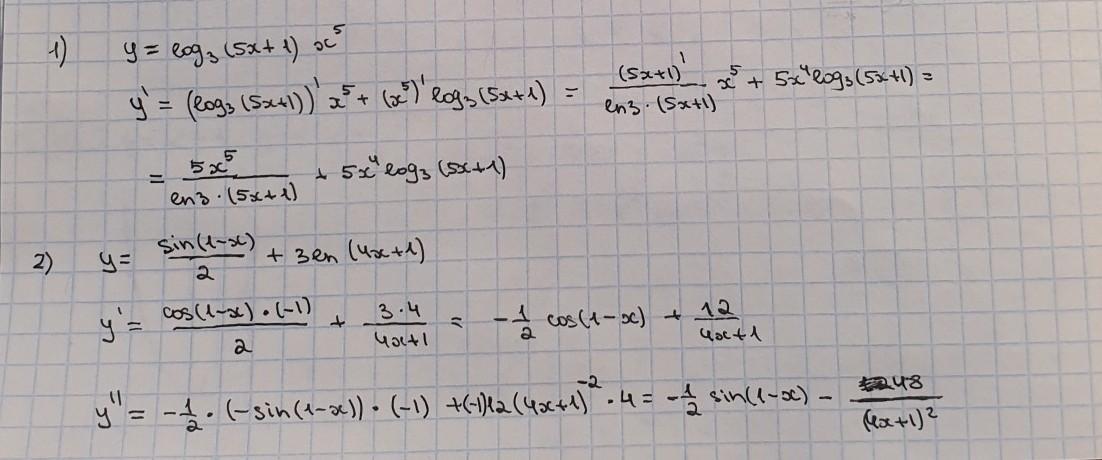 1) y = log₃(5x+1) x⁵
y' = (log₃(5x+1))' x⁵ + (x⁵)' log₃(5x+1) = (5x+1)'/(ln3·(5x+1)) x⁵ + 5x⁴log₃(5x+1) =
= 5x⁵/(ln3·(5x+1)) + 5x⁴log₃(5x+1)
2) y = sin(1-x)/2 + 3ln(4x+1)
y' = cos(1-x)·(-1)/2 + 3·4/(4x+1) = -1/2 cos(1-x) + 12/(4x+1)
y'' = -1/2·(-sin(1-x))·(-1) + (-1)12(4x+1)⁻²·4 = -1/2 sin(1-x) - 48/(4x+1)²